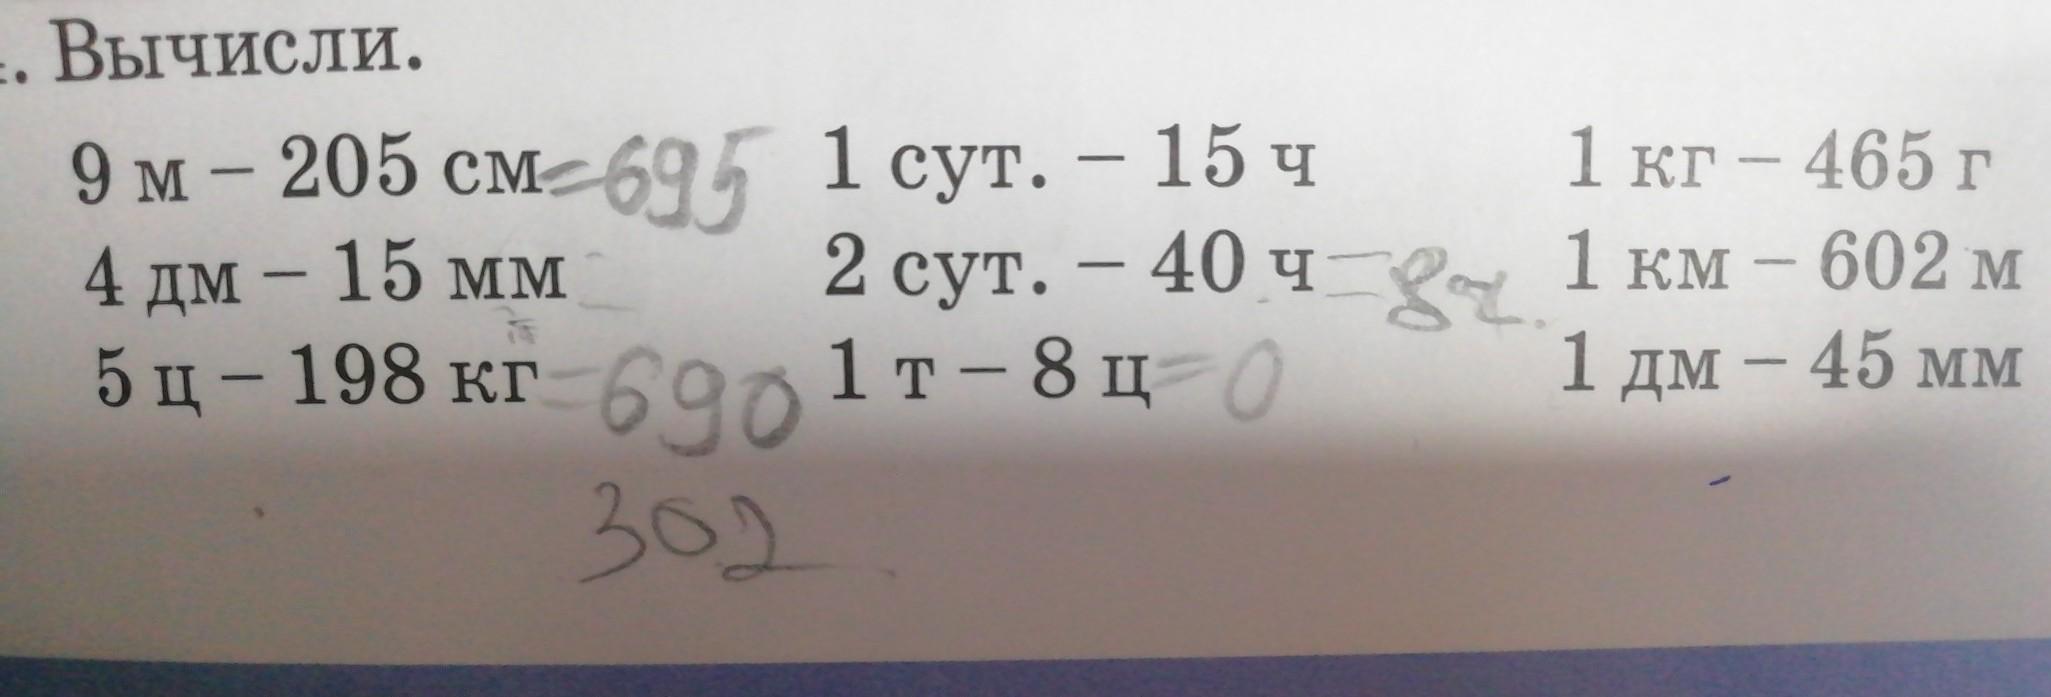 . Вычисли.
9 м – 205 см=695 1 сут. – 15 ч 1 кг – 465 г
4 дм – 15 мм = 2 сут. – 40 ч=8ч. 1 км – 602 м
5 ц – 198 кг=690 1 т – 8 ц=0 1 дм – 45 мм
302